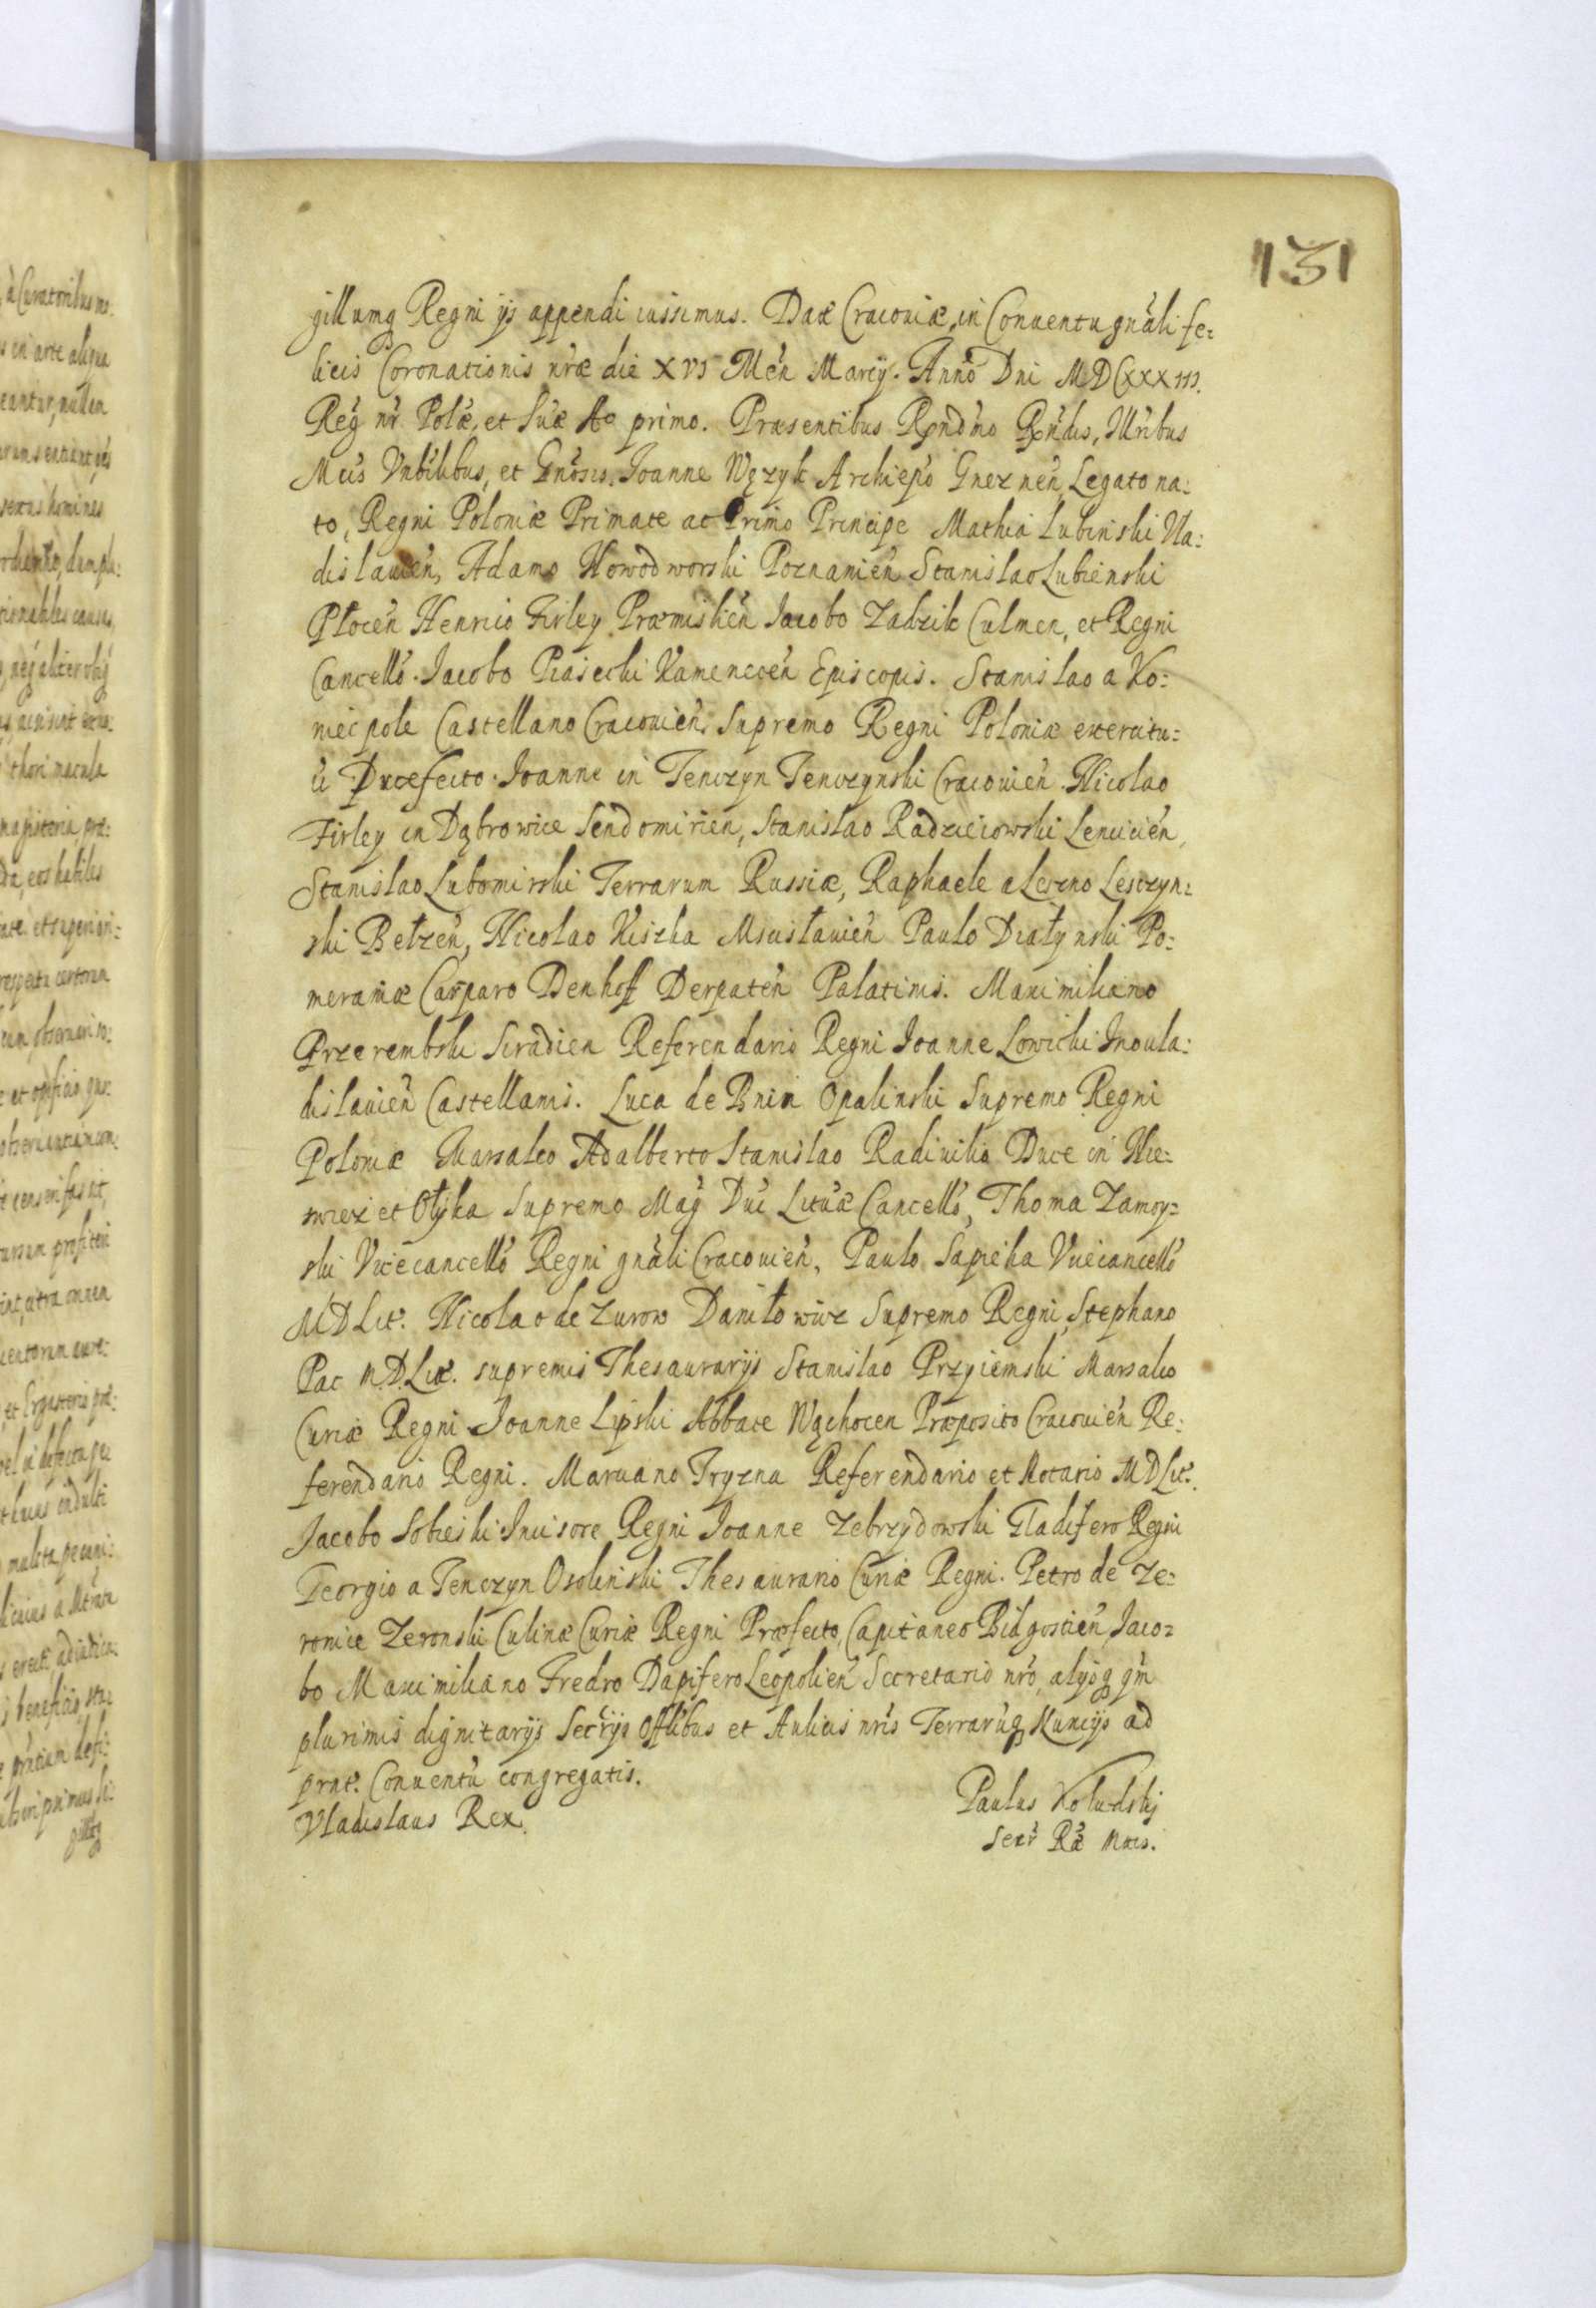 131
gillumq Regni ijs appendi iussimus. Datae Cracoviae, in Conuentu gnãli fe:
licis Coronationis nr̃ae die XVI Men̄ Marcij. Anno Dni MDCXXXIII.
Reg̃ nr̃ Pol̃æ, et Suæ Aº primo. Præsentibus Rendm̃o Rendis, Illr̃ibus
Mcis Vnb̃ilibus, et Gnõsis, Joanne Wężyk Archiepõ Gneznen̄, Legato na:
to, Regni Poloniæ Primate ac Primo Principe Mathia Lubinski Vla:
dislauien̄, Adamo Nowodworski Poznanien̄ Stanislao Lubienski
Płocen̄ Henrico Firley Præmislien̄ Jacobo Zadzik Culmen, et Regni
Cancellõ. Jacobo Piasecki Kamenecen̄ Episcopis. Stanislao a Ko:
niecpole Castellano Cracouien̄, Supremo Regni Poloniæ exercitu:
ũ Præfecto. Joanne in Tenczyn Tenczynski Cracouien̄. Nicolao
Firley in Dąbrowice Sendomirien, Stanislao Radzieiowski Lencicien̄,
Stanislao Lubomirski Terrarum Russiæ, Raphaele a Leszno Lesczyn:
ski Bełzen̄, Nicolao Kiszka Mscisłauien̄ Paulo Działynski Po:
meraniæ Casparo Denhoff Derpaten̄ Palatinis. Maximiliano
Przerembski Siradien Referendario Regni Joanne Lowicki Inoula:
dislauien̄ Castellanis. Luca de Bnin Opalinski Supremo Regni
Poloniæ Marsalco Adalberto Stanislao Radiuilio Duce in Nie:
swiez et Ołyka Supremo Mag̃ Duc̃ Lituæ Cancellõ, Thoma Zamoy:
ski Vicecancellõ Regni gnãli Cracouien̄, Paulo Sapieha Vicecancellõ
MDLit. Nicolao de Zurow Daniłowicz Supremo Regni, Stephano
Pac M.D.Lit. supremis Thesaurarijs Stanislao Przyiemski Marsalco
Curiæ Regni Joanne Lipski Abbate Wąchocen Præposito Cracouien̄ Re:
ferendario Regni. Marciano Tryzna Referendario et Notario MDLit.
Jacobo Sobieski Incisore Regni Joanne Zebrzydowski Gladifero Regni
Georgio a Tenczyn Osolinski Thesaurario Curiæ Regni. Petro de Ze:
ronice Zeronski Culinæ Curiæ Regni Præfecto, Capitaneo Bidgostien̄ Jaco:
bo Maximiliano Fredro Dapifero Leopolien̄ Secretario nrõ, alijsq qm̃
plurimis dignitarijs Secr̃ijs Offl̃ibus et Aulicis nr̃is Terrarũq Nuncijs ad
prnt. Conuentũ congregatis.
Vladislaus Rex.
Paulus Koludzkj
Secr̃ Rã Mtis.